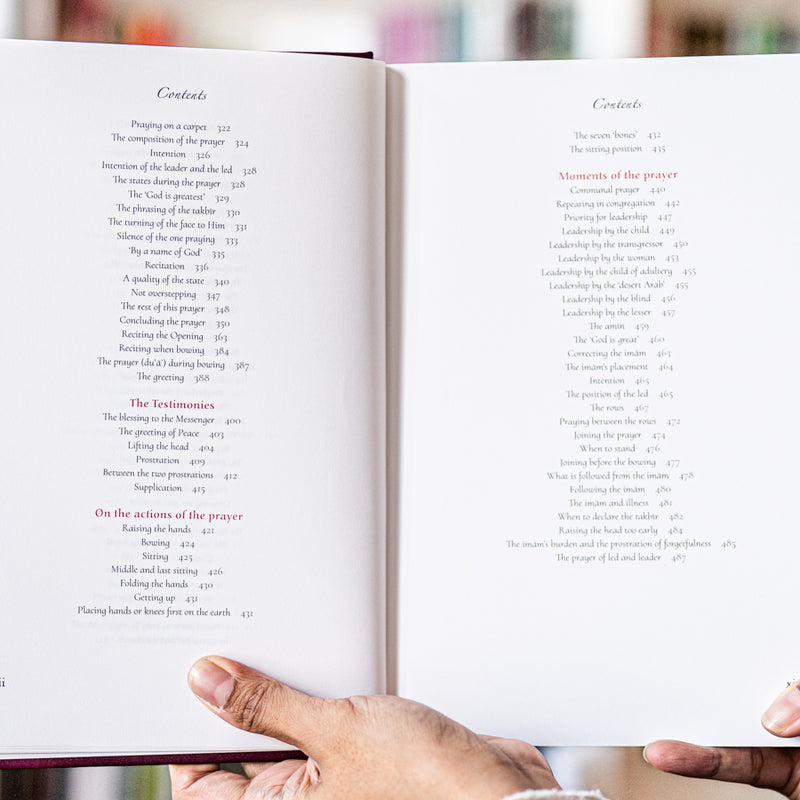 Contents
Praying on a carpet 322
The composition of the prayer 324
Intention 326
Intention of the leader and the led 328
The states during the prayer 328
The ‘God is greatest’ 329
The phrasing of the takbīr 330
The turning of the face to Him 331
Silence of the one praying 333
‘By a name of God’ 335
Recitation 336
A quality of the state 340
Not overstepping 347
The rest of this prayer 348
Concluding the prayer 350
Reciting the Opening 363
Reciting when bowing 384
The prayer (duʿāʾ) during bowing 387
The greeting 388
The Testimonies
The blessing to the Messenger 400
The greeting of Peace 403
Lifting the head 404
Prostration 409
Between the two prostrations 412
Supplication 415
On the actions of the prayer
Raising the hands 421
Bowing 424
Sitting 425
Middle and last sitting 426
Folding the hands 430
Getting up 431
Placing hands or knees first on the earth 431
Contents
The seven ‘bones’ 432
The sitting position 435
Moments of the prayer
Communal prayer 440
Repeating in congregation 442
Priority for leadership 447
Leadership by the child 449
Leadership by the transgressor 450
Leadership by the woman 453
Leadership by the child of adultery 455
Leadership by the ‘desert Arab’ 455
Leadership by the blind 456
Leadership by the lesser 457
The amīn 459
The ‘God is great’ 460
Correcting the imām 463
The imām's placement 464
Intention 465
The position of the led 465
The rows 467
Praying between the rows 472
Joining the prayer 474
When to stand 476
Joining before the bowing 477
What is followed from the imām 478
Following the imām 480
The imām and illness 481
When to declare the takbīr 482
Raising the head too early 484
The imām's burden and the prostration of forgetfulness 485
The prayer of led and leader 487